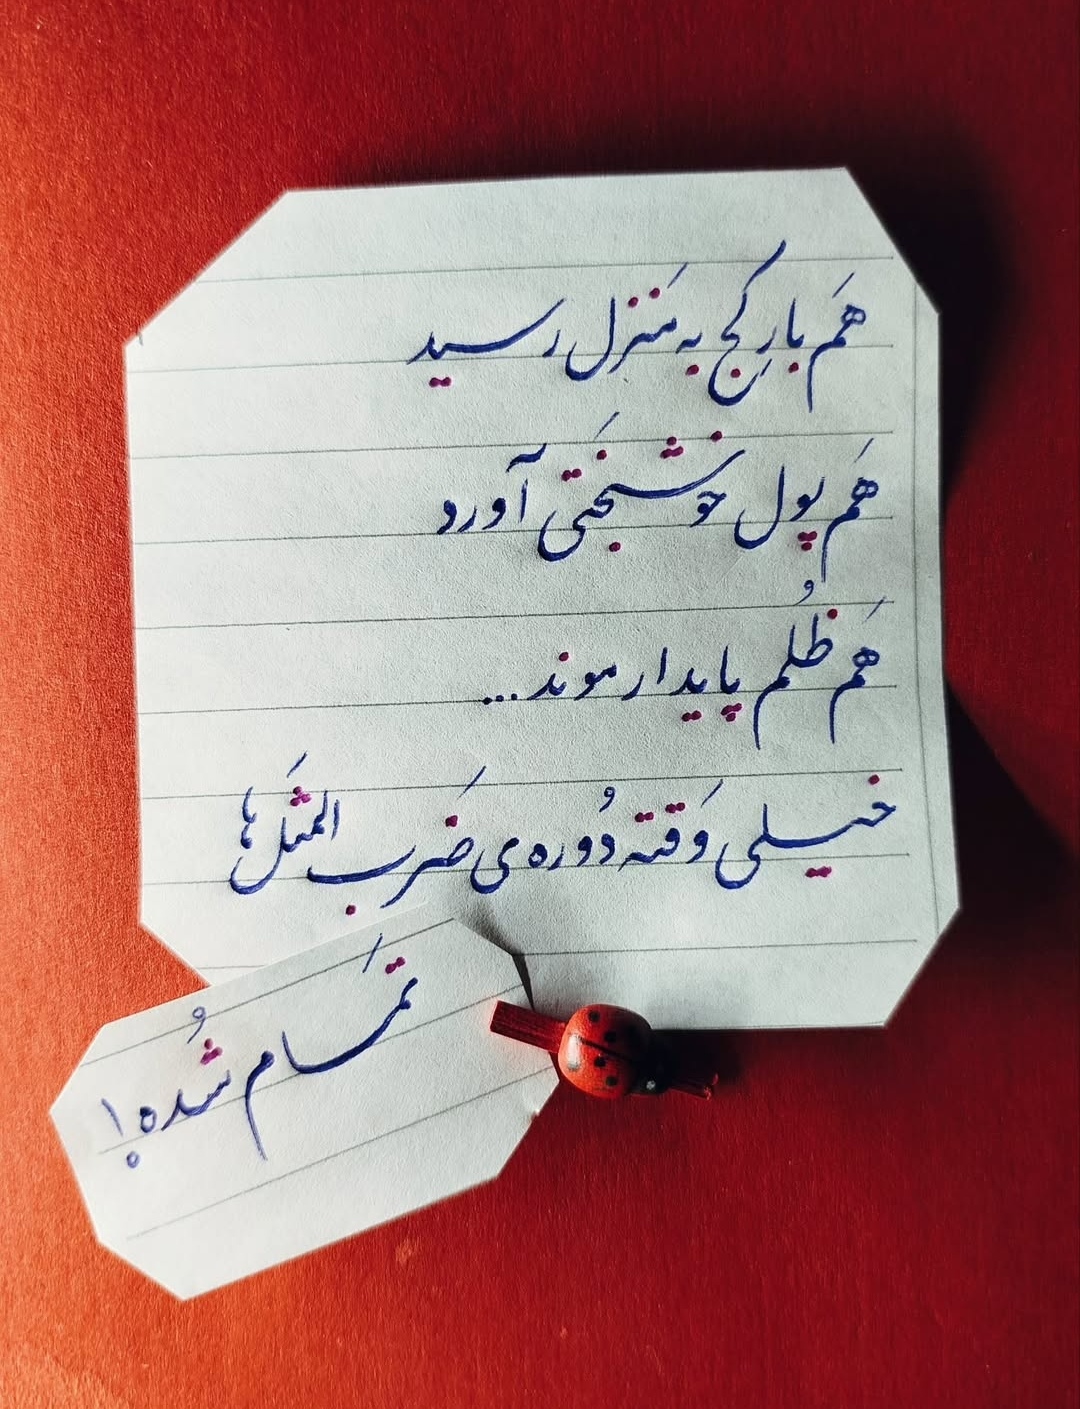 هَم بارِ کَج به مَنزل رسید
هَم پول خوشبَختی آورد
هَم ظُلم پایدار موند...
خیلی وَقته دُوره‌ی ضَرب المثَل ها
تمَام شُده!